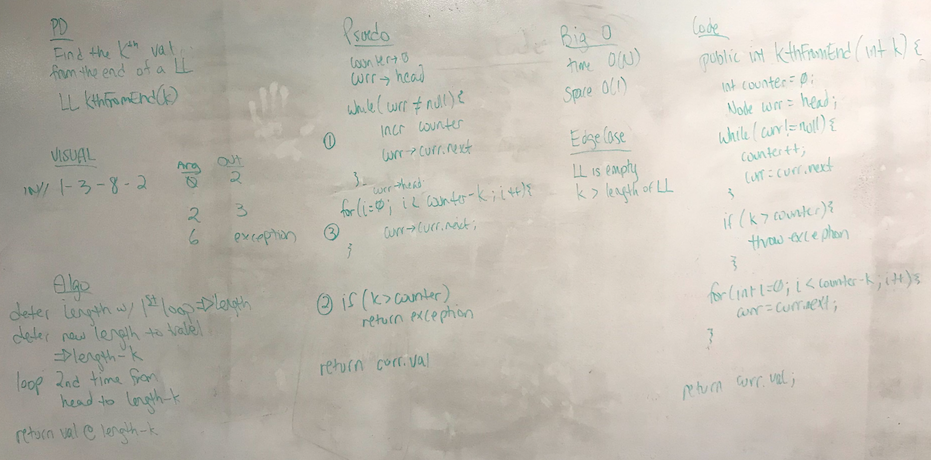 PD
Find the kth val
from the end of a LL
LL. KthFromEnd(k)
VISUAL
1-3-8-2
Arg Out
0 2
2 3
6 exception
Algo
deter length w/ 1st loop => length
deter new length to travel
=> length-k
loop 2nd time from
head to length-k
return val @ length-k
Psuedo
counter → 0
curr → head
while(curr ≠ null){
① incr counter
curr → curr.next
}
curr → head
for(i=0; i < counter-k; i++){
③ curr → curr.next;
}
② if (k > counter)
return exception
return curr.val
Big O
time O(N)
Space O(1)
Edge Case
LL is empty
k > length of LL
Code
public int KthFromEnd(int k){
int counter = 0;
Node curr = head;
while(curr != null){
counter++;
curr = curr.next
}
if (k > counter){
throw exception
}
for(int i=0; i < counter-k; i++){
curr = curr.next;
}
return curr.val;